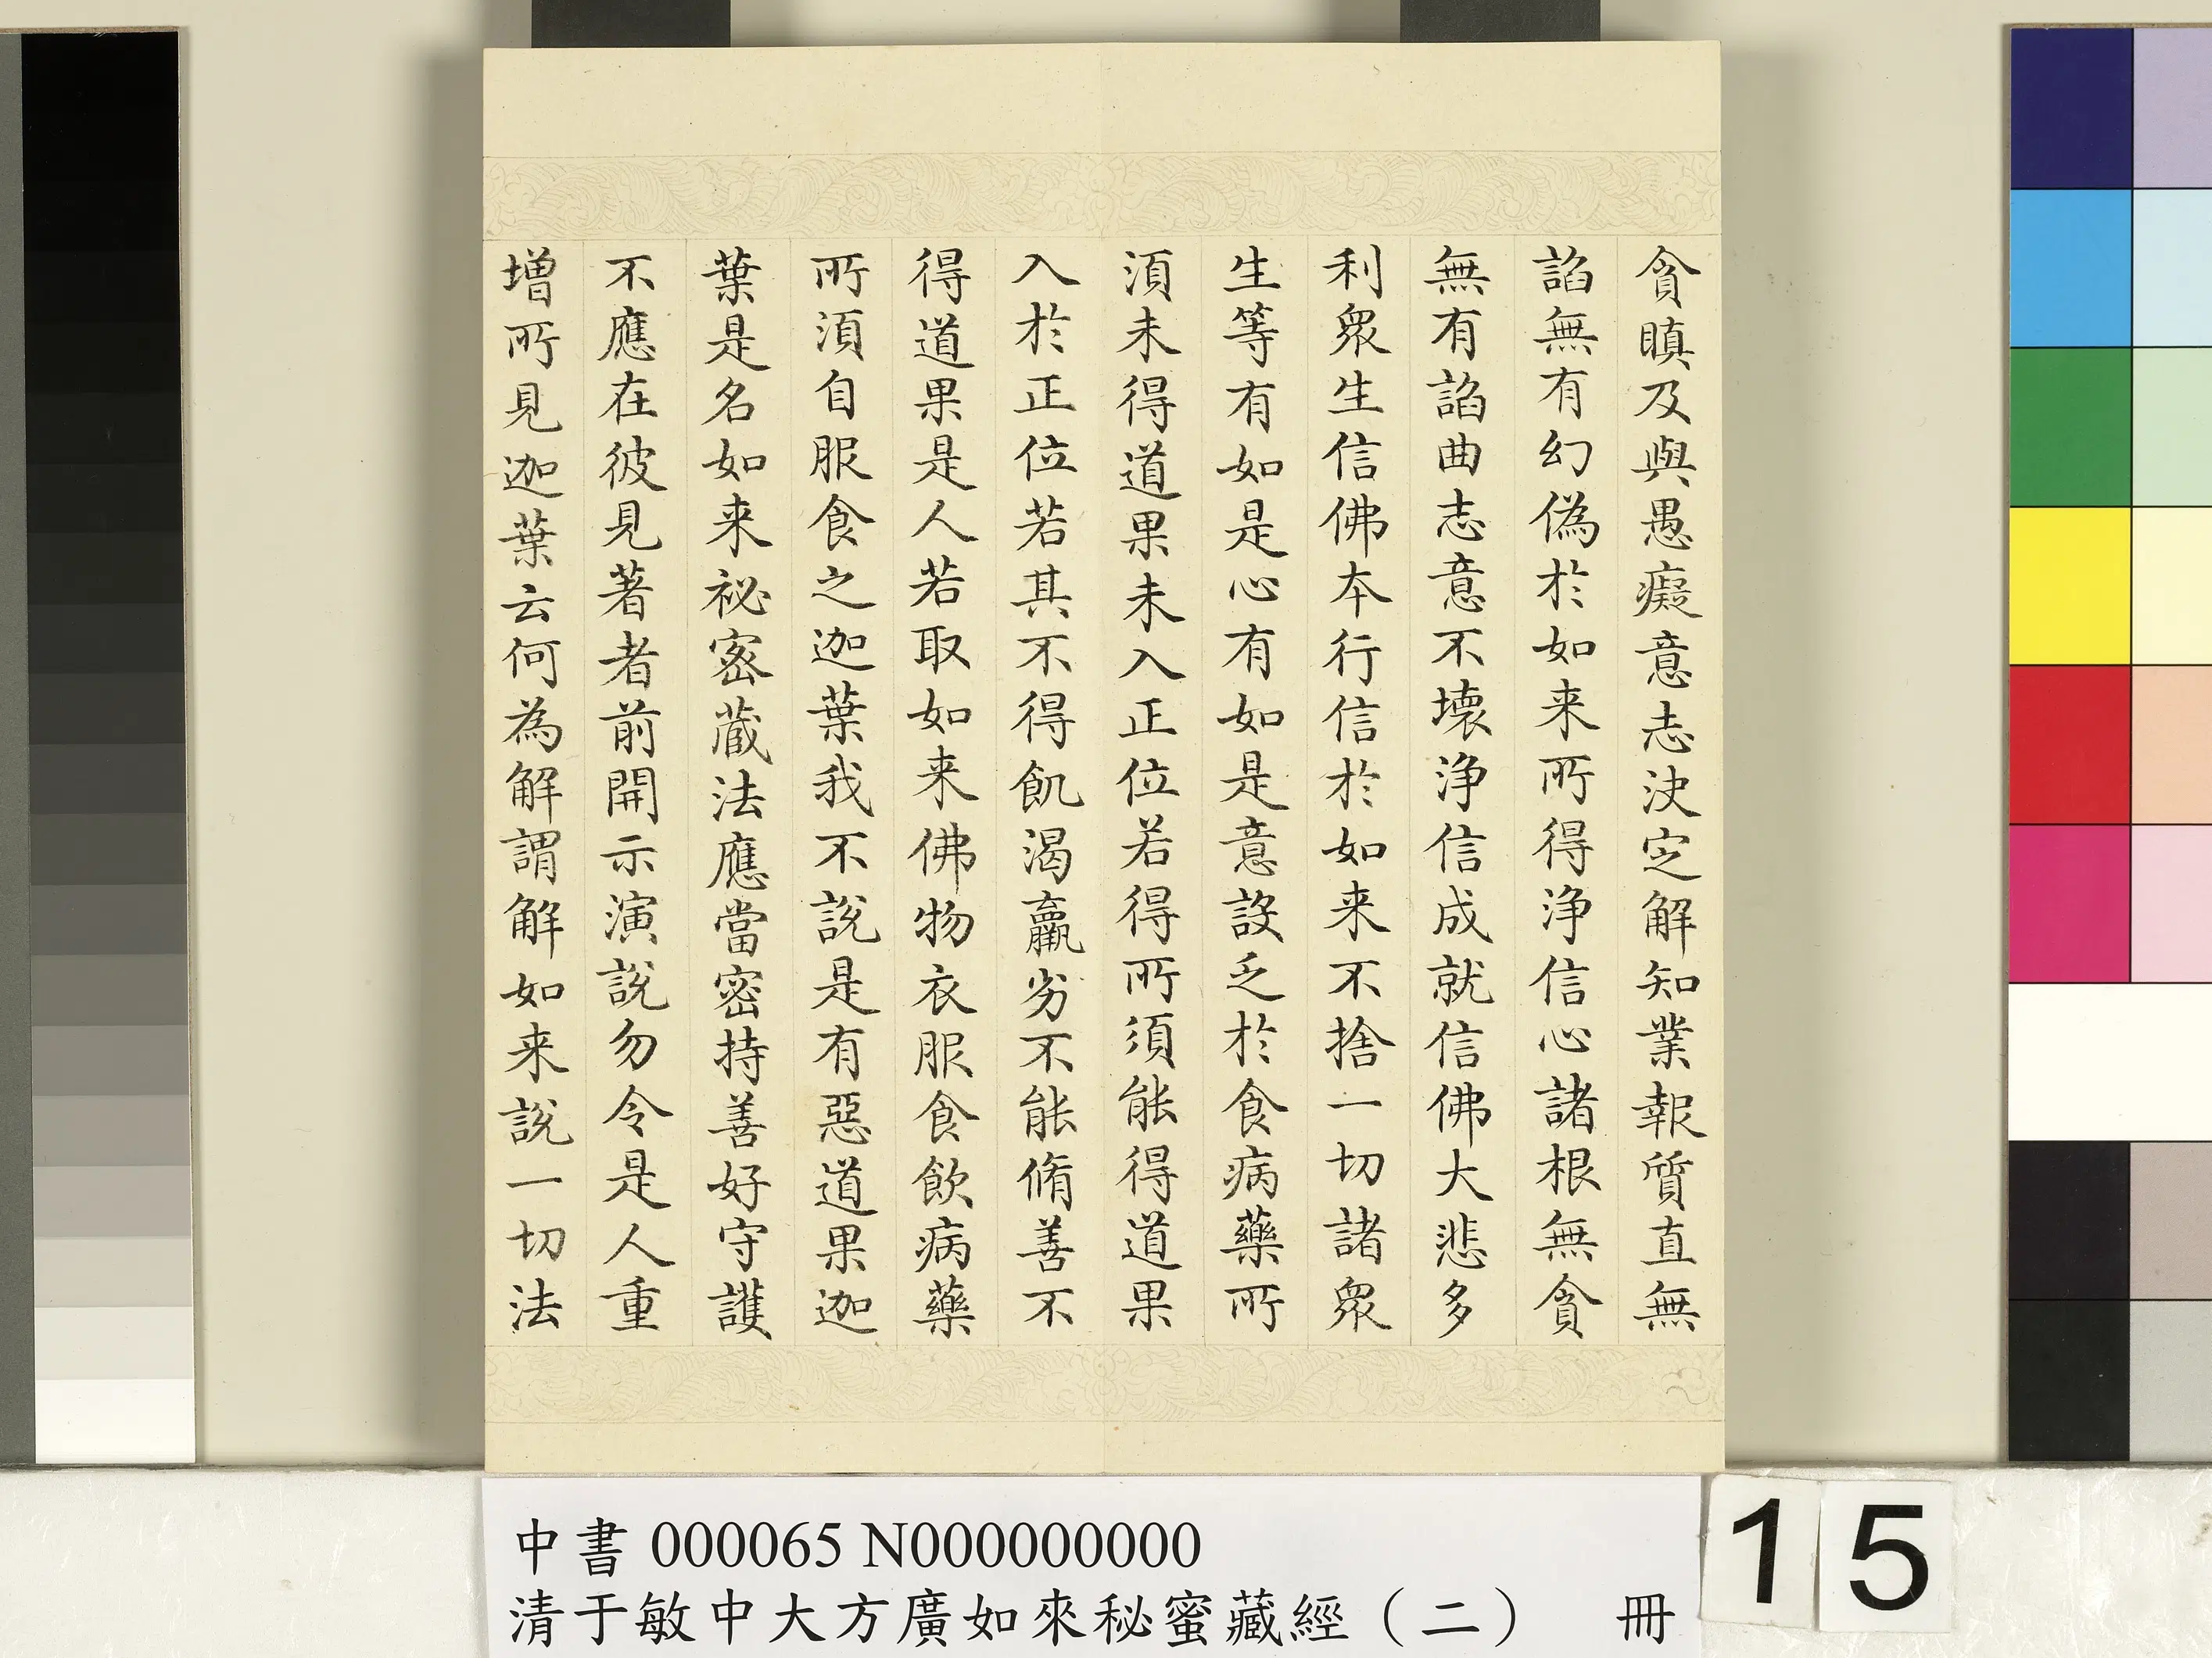 貪瞋及與愚癡意志決定解知業報質直無
諂無有幻偽於如来所得淨信心諸根無貪
無有諂曲志意不壞淨信成就信佛大悲多
利衆生信佛本行信於如来不捨一切諸衆
生等有如是心有如是意設乏於食病藥所
須未得道果未入正位若得所須能得道果
入於正位若其不得飢渴羸劣不能脩善不
得道果是人若取如来佛物衣服食飲病藥
所須自服食之迦葉我不說是有惡道果迦
葉是名如来祕密藏法應當密持善好守護
不應在彼見著者前開示演說勿令是人重
增所見迦葉云何為解謂解如来說一切法
中書 000065 N000000000
清于敏中大方廣如來秘蜜藏經（二） 冊
15